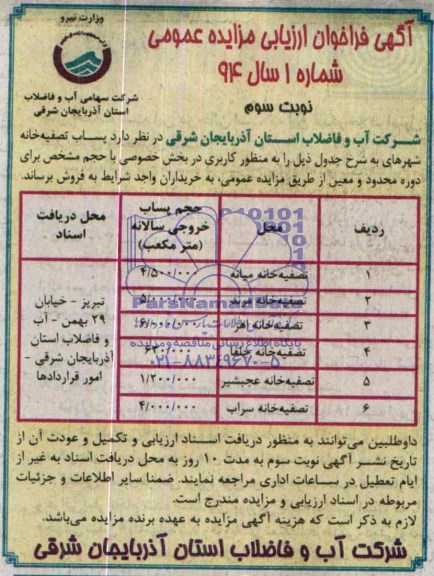 وزارت نیرو
شرکت سهامی آب و فاضلاب
استان آذربایجان شرقی
آگهی فراخوان ارزیابی مزایده عمومی
شماره ۱ سال ۹۴
نوبت سوم
شرکت آب و فاضلاب استان آذربایجان شرقی در نظر دارد پساب تصفیه‌خانه
شهرهای به شرح جدول ذیل را به منظور کاربری در بخش خصوصی با حجم مشخص برای
دوره محدود و معین از طریق مزایده عمومی، به خریداران واجد شرایط به فروش برساند.
ردیف محل حجم پساب خروجی سالانه (متر مکعب) محل دریافت اسناد
۱ تصفیه‌خانه میانه ۴/۵۰۰/۰۰۰
۲ تصفیه‌خانه مرند
۳ تصفیه‌خانه اهر
۴ تصفیه‌خانه جلفا
۵ تصفیه‌خانه عجبشیر ۱/۲۰۰/۰۰۰
۶ تصفیه‌خانه سراب ۴/۰۰۰/۰۰۰
تبریز - خیابان
۲۹ بهمن - آب
و فاضلاب استان
آذربایجان شرقی -
امور قراردادها
ParsNamadData
پایگاه اطلاع رسانی مناقصه و مزایده
۰۲۱-۸۸۳۴۹۶۷۰-۵
داوطلبین می‌توانند به منظور دریافت اسناد ارزیابی و تکمیل و عودت آن از
تاریخ نشر آگهی نوبت سوم به مدت ۱۰ روز به محل دریافت اسناد به غیر از
ایام تعطیل در ساعات اداری مراجعه نمایند. ضمنا سایر اطلاعات و جزئیات
مربوطه در اسناد ارزیابی و مزایده مندرج است.
لازم به ذکر است که هزینه آگهی مزایده به عهده برنده مزایده می‌باشد.
شرکت آب و فاضلاب استان آذربایجان شرقی